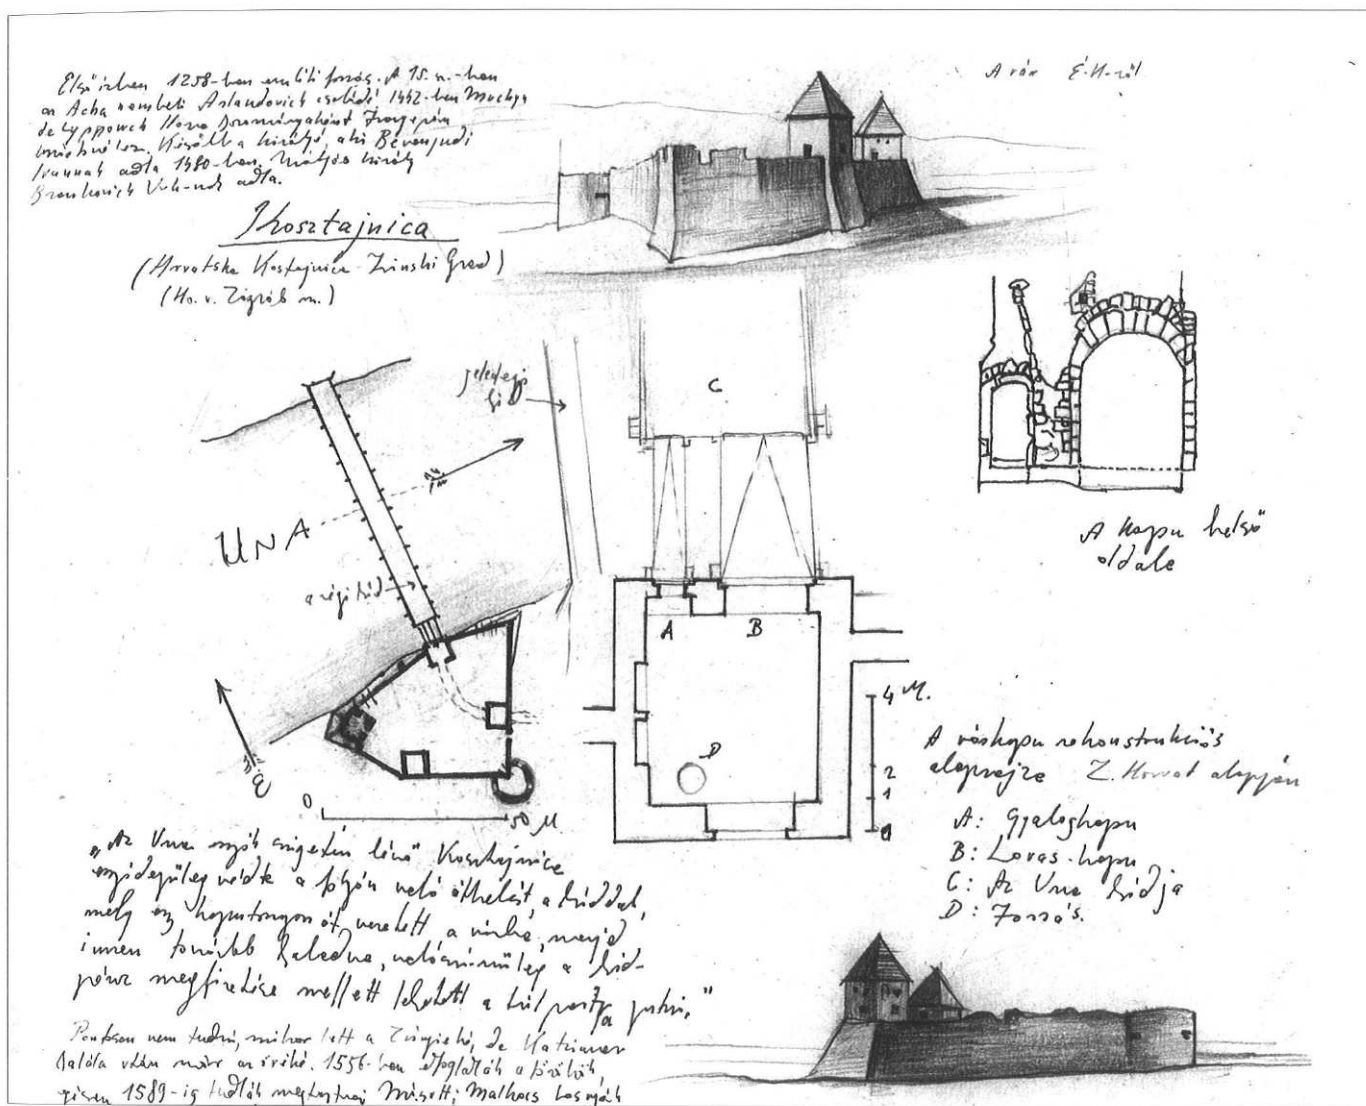 Először 1258-ban említi forrás. A 15. sz.-ban
az Acha nembeli Arlandovich családé 1442-ben
Később a királyé, aki
adta 1480-ban. Mátyás király
Brankovich Vuk-nak adta.
Kosztajnica
(Hrvatska Kostajnica - Zrinski Grad)
(Ho. v. Zágráb m.)
A vár É.K.-ről
C
jelenlegi
híd
UNA
a régi híd
A kapu belső
oldala
A
B
D
4 M.
2
1
0
É
0
50 M
A várkapu rekonstrukciós
alaprajza Z. Horvat alapján
A: Gyalogkapu
B: Lovas-kapu
C: Az Una hídja
D: Forrás.
"Az Una egyik szigetén lévő Kosztajnica
egyidejűleg védte a folyón való átkelést, a híddal,
mely egy kaputornyon át vezetett a várba, majd
innen tovább haladva, valószínűleg a híd-
pénz megfizetése mellett lehetett a túl partra jutni."
Pontosan nem tudni, mikor lett a Zrínyieké, de Katzianer
halála után már az övéké. 1556-ban elfoglalták a törökök
1589-ig tudták megtartani